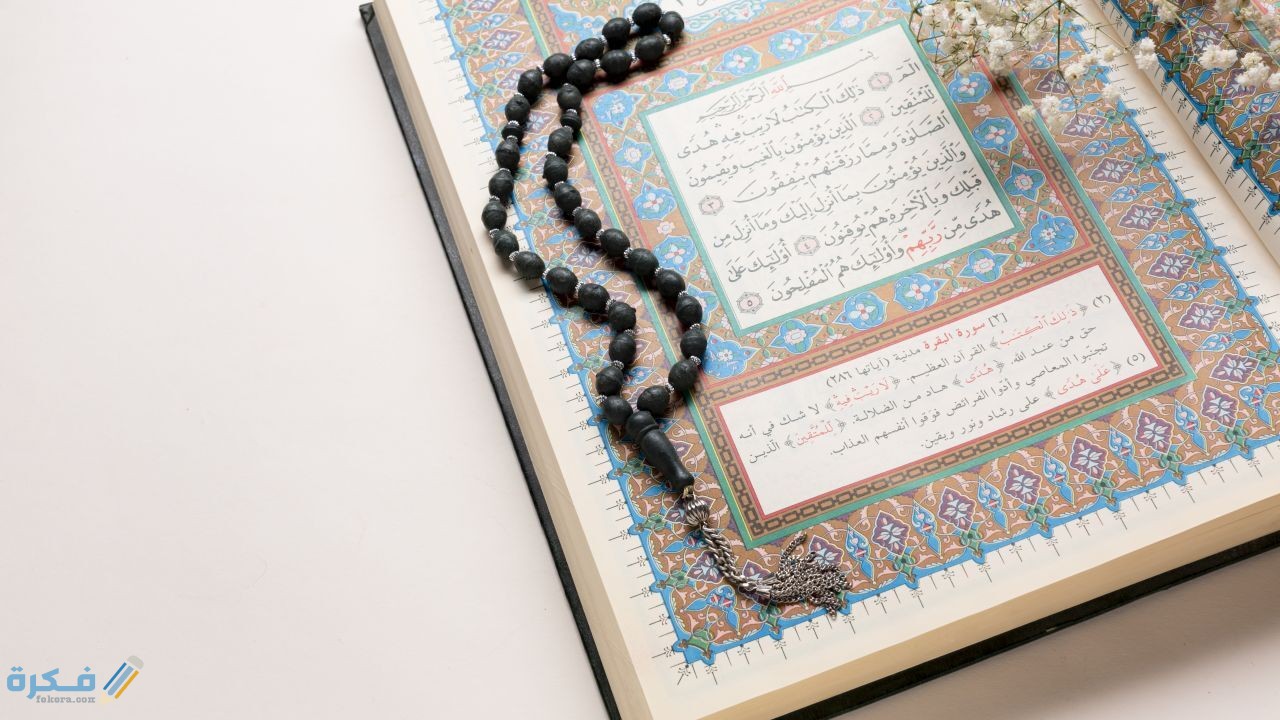 بِسْمِ اللَّهِ الرَّحْمَٰنِ الرَّحِيمِ
الٓمٓ ١ ذَٰلِكَ ٱلْكِتَٰبُ لَا رَيْبَ فِيهِ هُدًى
لِّلْمُتَّقِينَ ٢ ٱلَّذِينَ يُؤْمِنُونَ بِٱلْغَيْبِ وَيُقِيمُونَ
ٱلصَّلَوٰةَ وَمِمَّا رَزَقْنَٰهُمْ يُنفِقُونَ ٣
وَٱلَّذِينَ يُؤْمِنُونَ بِمَآ أُنزِلَ إِلَيْكَ وَمَآ أُنزِلَ مِن
قَبْلِكَ وَبِٱلْءَاخِرَةِ هُمْ يُوقِنُونَ ٤ أُو۟لَٰٓئِكَ عَلَىٰ
هُدًى مِّن رَّبِّهِمْ وَأُو۟لَٰٓئِكَ هُمُ ٱلْمُفْلِحُونَ ٥
[٢] سورة البقرة مدنية (آياتها ٢٨٦)
(٢) ﴿ذَلِكَ ٱلْكِتَٰبُ﴾ القرآن العظيم. ﴿لَا رَيْبَ فِيهِ﴾ لا شك في أنه
حق من عند الله. ﴿هُدًى﴾ هاد من الضلالة. ﴿لِلْمُتَّقِينَ﴾ الذين
تجنبوا المعاصي وأدّوا الفرائض فوَقَوا أنفسهم العذاب.
(٥) ﴿عَلَى هُدًى﴾ على رشاد ونور ويقين.
فكرة
fekera.com